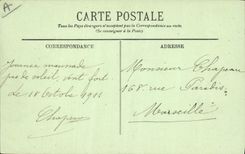 A
CARTE POSTALE
Tous les Pays étrangers n'acceptent pas la Correspondance au verso.
(Se renseigner à la Poste)
CORRESPONDANCE
ADRESSE
Journée maussade
pas de soleil, vent fort
le 18 Octobre 1911
Chapeau
Monsieur Chapeau
168 rue Paradis
Marseille